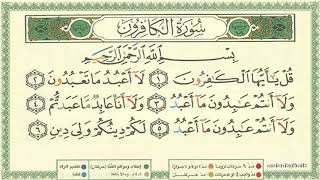 سُورَةُ الكَافِرُونَ
بِسْمِ اللَّهِ الرَّحْمَٰنِ الرَّحِيمِ
قُلْ يَٰٓأَيُّهَا ٱلْكَٰفِرُونَ ١ لَآ أَعْبُدُ مَا تَعْبُدُونَ ٢
وَلَآ أَنتُمْ عَٰبِدُونَ مَآ أَعْبُدُ ٣ وَلَآ أَنَا۠ عَابِدٌ مَّا عَبَدتُّمْ ٤
وَلَآ أَنتُمْ عَٰبِدُونَ مَآ أَعْبُدُ ٥ لَكُمْ دِينُكُمْ وَلِىَ دِينِ ٦